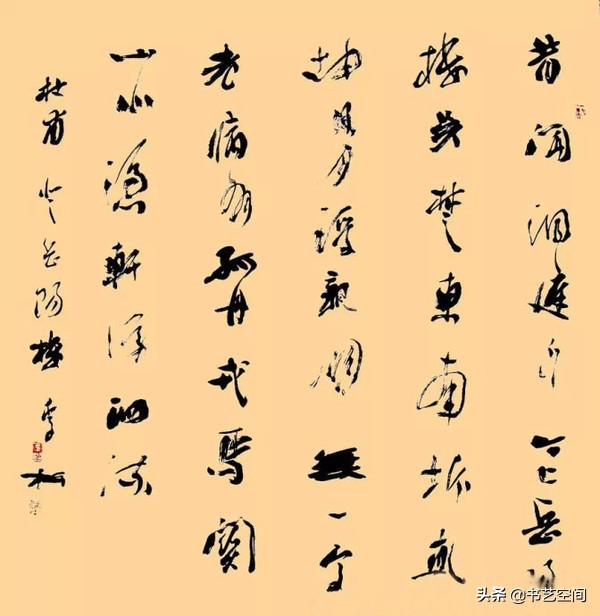 昔闻洞庭水今上岳阳
楼吴楚东南坼乾
坤日夜浮親朋無一字
老病有孤舟戎馬關
山北憑軒涕泗流
杜甫登岳阳楼
头条 @书艺空间